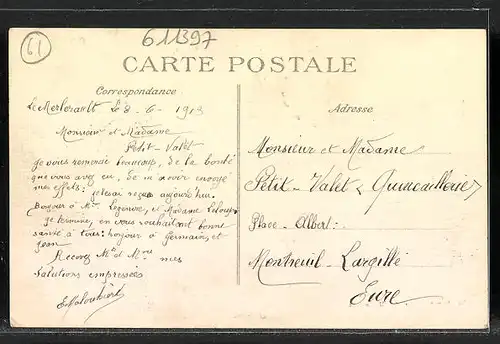 61
611397
CARTE POSTALE
Correspondance
Le Merlerault Le 8-6-1913
Monsieur et Madame
Petit-Valet
Je vous remercie beaucoup, de la bonté
que vous avez eu, de m'avoir envoyé
mes effets: je les ai reçus aujourd'hui.
Bonjour à Mme et Madame
je termine, en vous souhaitant bonne
santé à tous: bonjour à Germain, et
Jean
Recevez Mr et Mme mes
Salutions empressées
Adresse
Monsieur et Madame
Petit-Valet (Quincaillerie)
Place-Albert.
Montreuil-Largillé
Eure